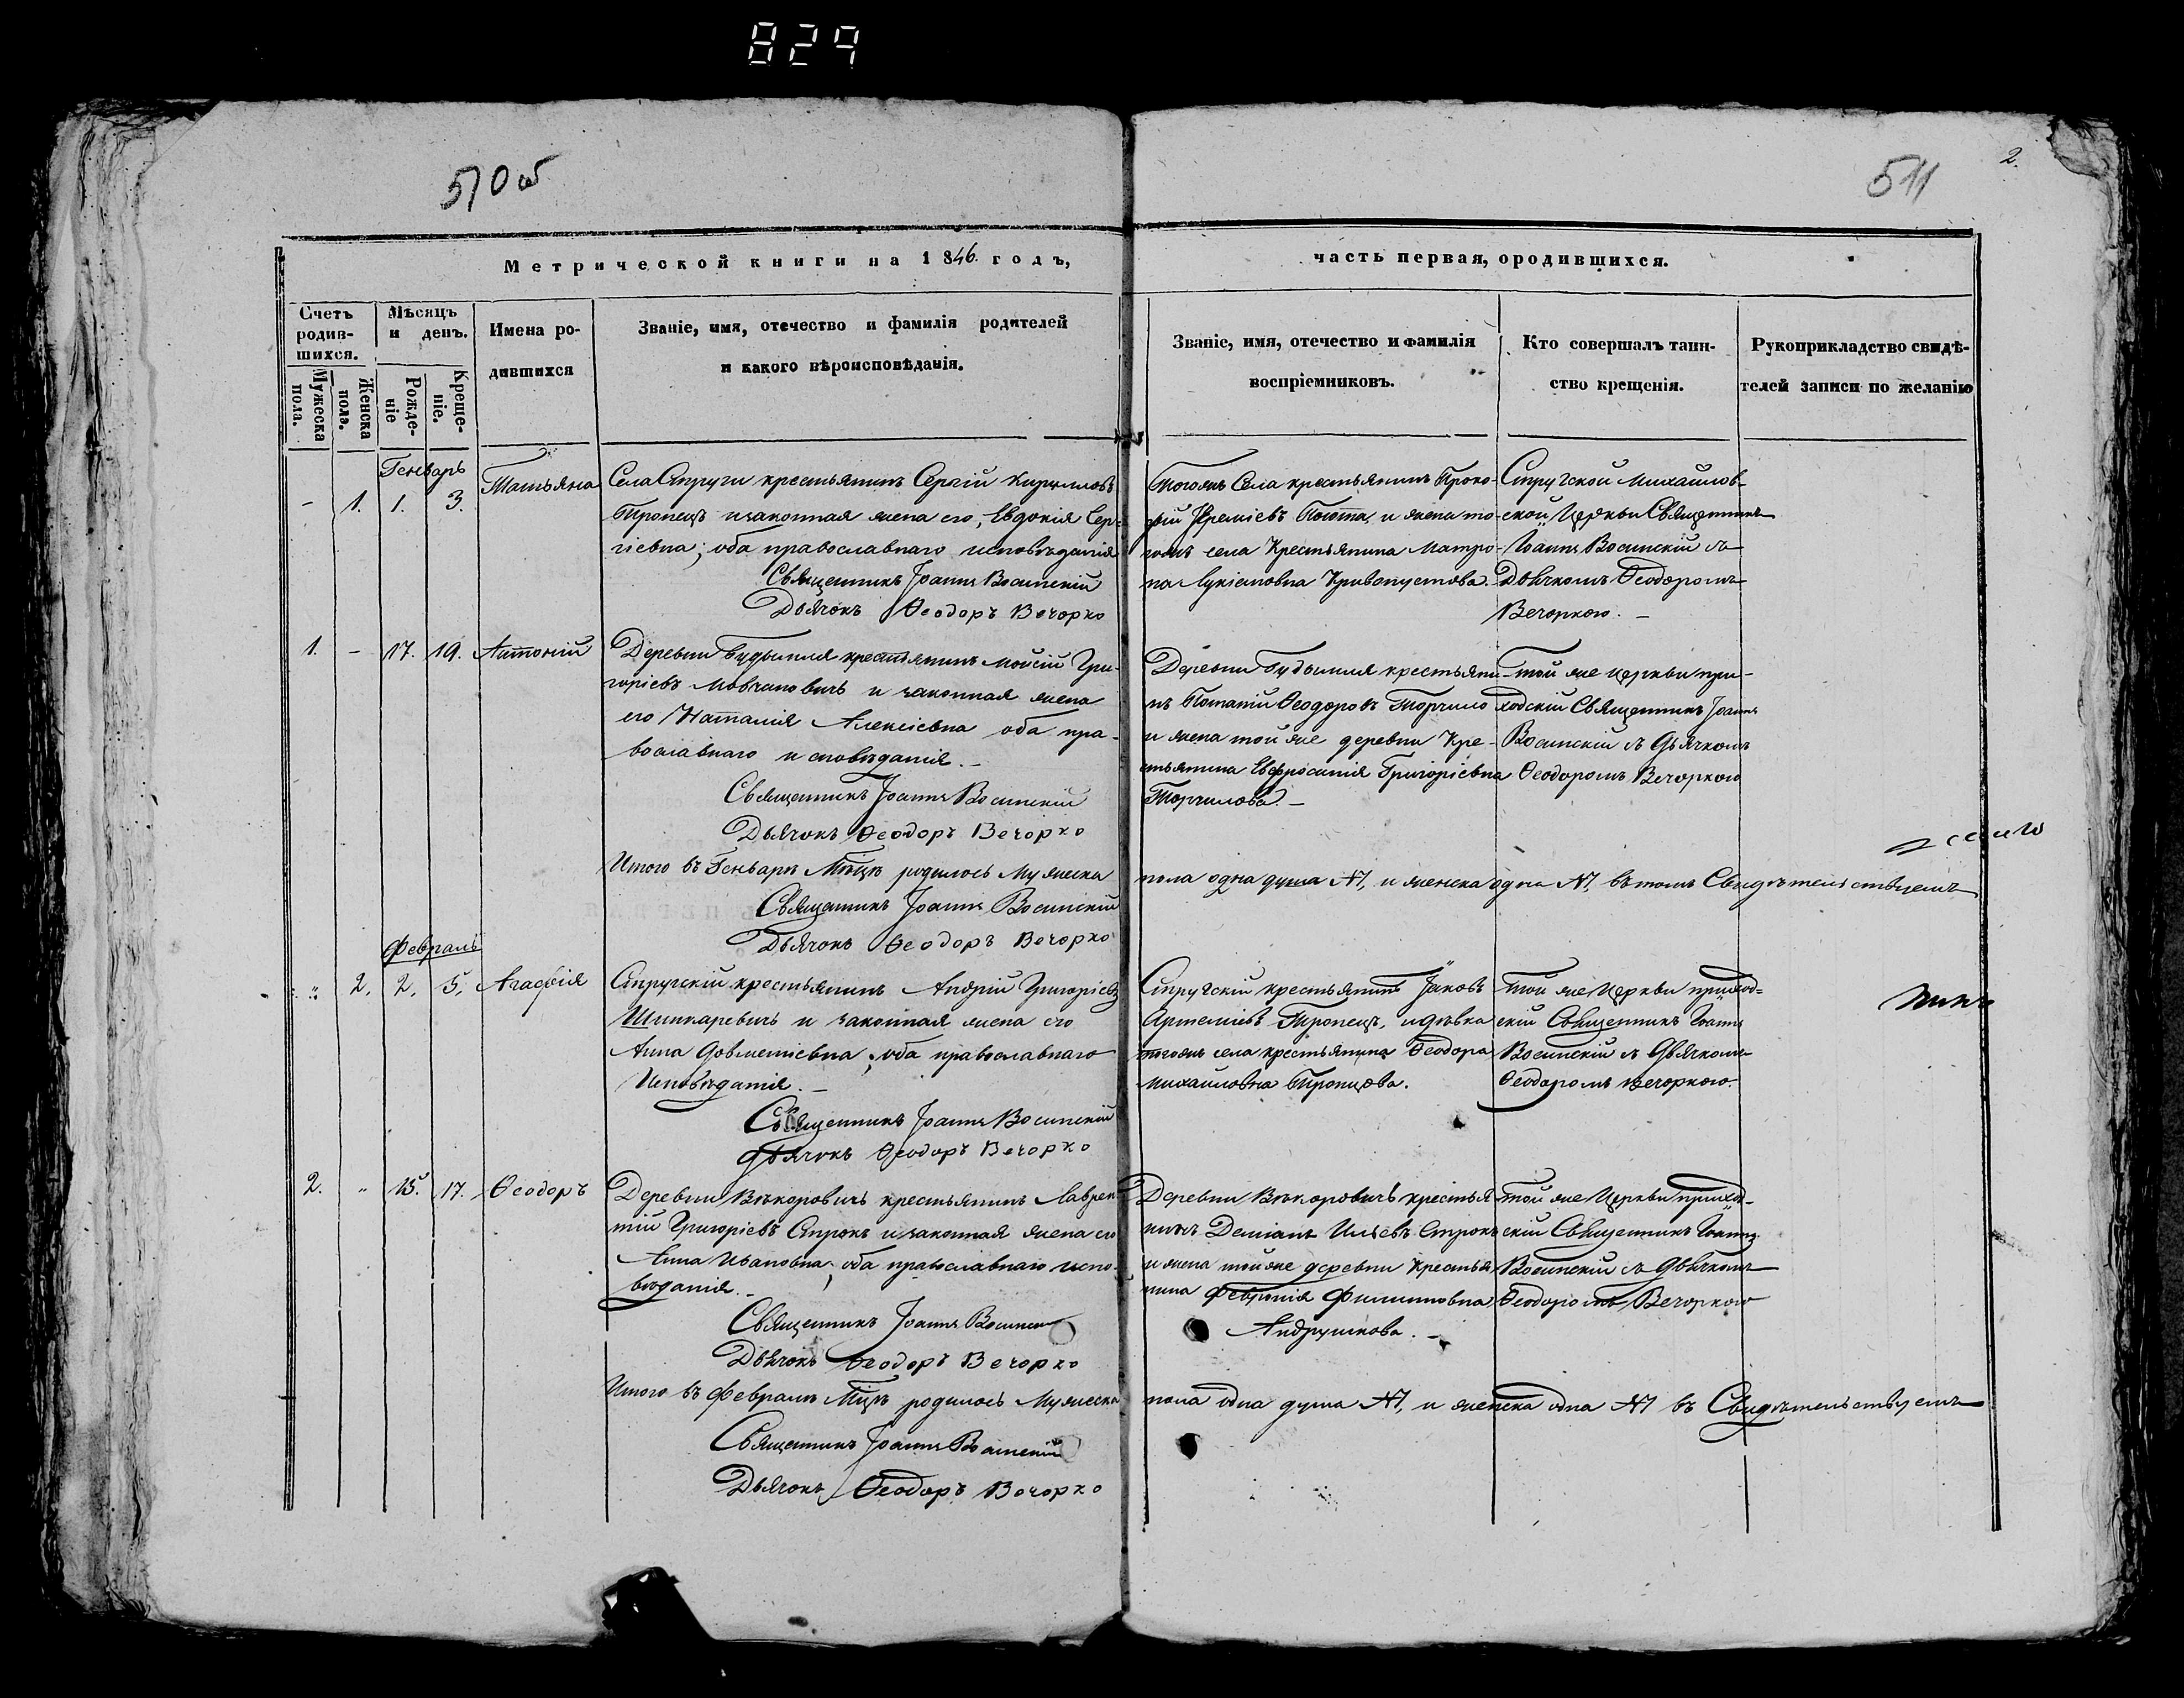 829
510 об
511
2.
Метрической книги на 1846. годъ,
часть первая, ородившихся.
Счетъ родив-шихся.
Мужеска пола.
Женска пола.
Мѣсяцъ и день.
Рожде-ніе
Креще-ніе.
Имена ро-
дившихся
Званіе, имя, отечество и фамилія родителей
и какого вѣроисповѣданія.
Званіе, имя, отечество и фамилія
воспріемниковъ.
Кто совершалъ таин-
ство крещенія.
Рукоприкладство свидѣ-
телей записи по желанію
Генварь
- 1. 1. 3. Татьяна
Села Струги крестьянинъ Сергій Кирилловъ
Тропецъ изаконная жена его, Евдокія Сер-
гіевна; оба православнаго исповѣданія
Священникъ Іоаннъ Восинскій
Дьячокъ Ѳеодоръ Вечорко
Тогожъ Села крестьянинъ Проко-
фій Іереміевъ и жена то-
гожъ села Крестьянина Матро-
на Лукіановна Кривопустова.
Стругской Михайлов-
ской Церкви Священникъ
Іоаннъ Восинскій съ
Дьячкомъ Ѳеодоромъ
Вечоркою. -
1. - 17. 19. Антоній
Деревни крестьянинъ Мойсій Гри-
горіевъ Мовчановичъ и законная жена
его Наталія Алексіевна оба пра-
вославнаго исповѣданія. -
Священникъ Іоаннъ Восинскій
Дьячокъ Ѳеодоръ Вечорко
Деревни крестьяни-
нъ Потапій Ѳеодоровъ Торчило
и жена той же деревни Кре-
стьянина Евфросинія Григоріевна
Торчилова -
той же церкви при-
ходскій Священникъ Іоаннъ
Восинскій съ Дьячкомъ
Ѳеодоромъ Вечоркою
Итого въ Генварѣ Мѣцѣ родилось Мужеска
пола одна душа №1, и женска одна №1, въ томъ Свидѣтельствуемъ
Священникъ Іоаннъ Восинскій
Дьячокъ Ѳеодоръ Вечорко
Февраль
" 2. 2. 5. Агафія
Стругскій крестьянинъ Андрій Григоріевъ
Шинкаревичъ и законная жена его
Анна оба православнаго
Исповѣданія. -
Священникъ Іоаннъ Восинскій
Дьячокъ Ѳеодоръ Вечорко
Стругскій крестьянинъ Іаковъ
Артеміевъ Тропецъ, и дѣвка
тогожъ села крестьянина Ѳеодора
Михайловна Тропцова.
той же Церкви приход=
скій Священникъ Іоаннъ
Восинскій съ Дьячкомъ
Ѳеодоромъ Вечоркою.
2. " 15. 17. Ѳеодоръ
Деревни Вѣкоровичъ крестьянинъ Лаврен-
тій Григоріевъ Строкъ и законная жена его
Анна Ивановна; оба православнаго испо-
вѣданія. -
Священникъ Іоаннъ Восинскій
Дьячокъ Ѳеодоръ Вечорко
Деревни Вѣкоровичъ крестья
нинъ Деміанъ Ильевъ Строкъ
и жена той же деревни Крестья
нина Февронія Филиповна
Андрушкова. -
той же Церкви приход-
скій Священникъ Іоаннъ
Восинскій съ Дьячкомъ
Ѳеодоромъ Вечоркою
Итого въ Февралѣ Мцѣ родилось Мужеска
пола одна душа №1, и женска одна №1 въ Свидѣтельствуемъ
Священникъ Іоаннъ Восинскій
Дьячокъ Ѳеодоръ Вечорко